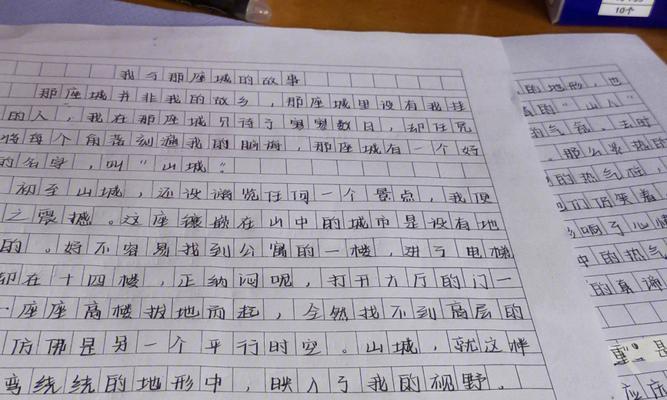 我与那座城的故事
那座城并非我的故乡，那座城里没有我挂
的人，我在那座城只待了寥寥数日，却任凭
将每个角落刻遍我的脑海，那座城有一个好
的名字，叫“山城”
初至山城，还没游览任何一个景点，我便
之震撼。这座镶嵌在山中的城市是没有地
的。好不容易找到公寓的一楼，进了电梯
却在十四楼，正纳闷呢，打开方厅的门一
座座高楼拔地而起，全然找不到高层的
仿佛是另一个平行时空。山城，就这样
弯绕绕的地形中，映入了我的视野。
的地形，也
的“山人”
的气氛。去时
的热气
啊了心情
中的热气
的真谛
10个